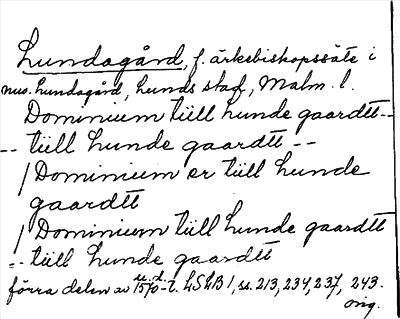 Lundagård, f. ärkebiskopssäte i
nuv. Lundagård, Lunds stad, Malm. l.
Dominium tiill Lunde gaardtt --
-- tiill Lunde gaardtt --
/ Dominium er tiill Lunde
gaardtt
/ Dominium tiill Lunde gaardtt
-- tiill Lunde gaardtt
förra delen av 1570-t. LSLB 1, ss. 213, 234, 237, 243.
orig.